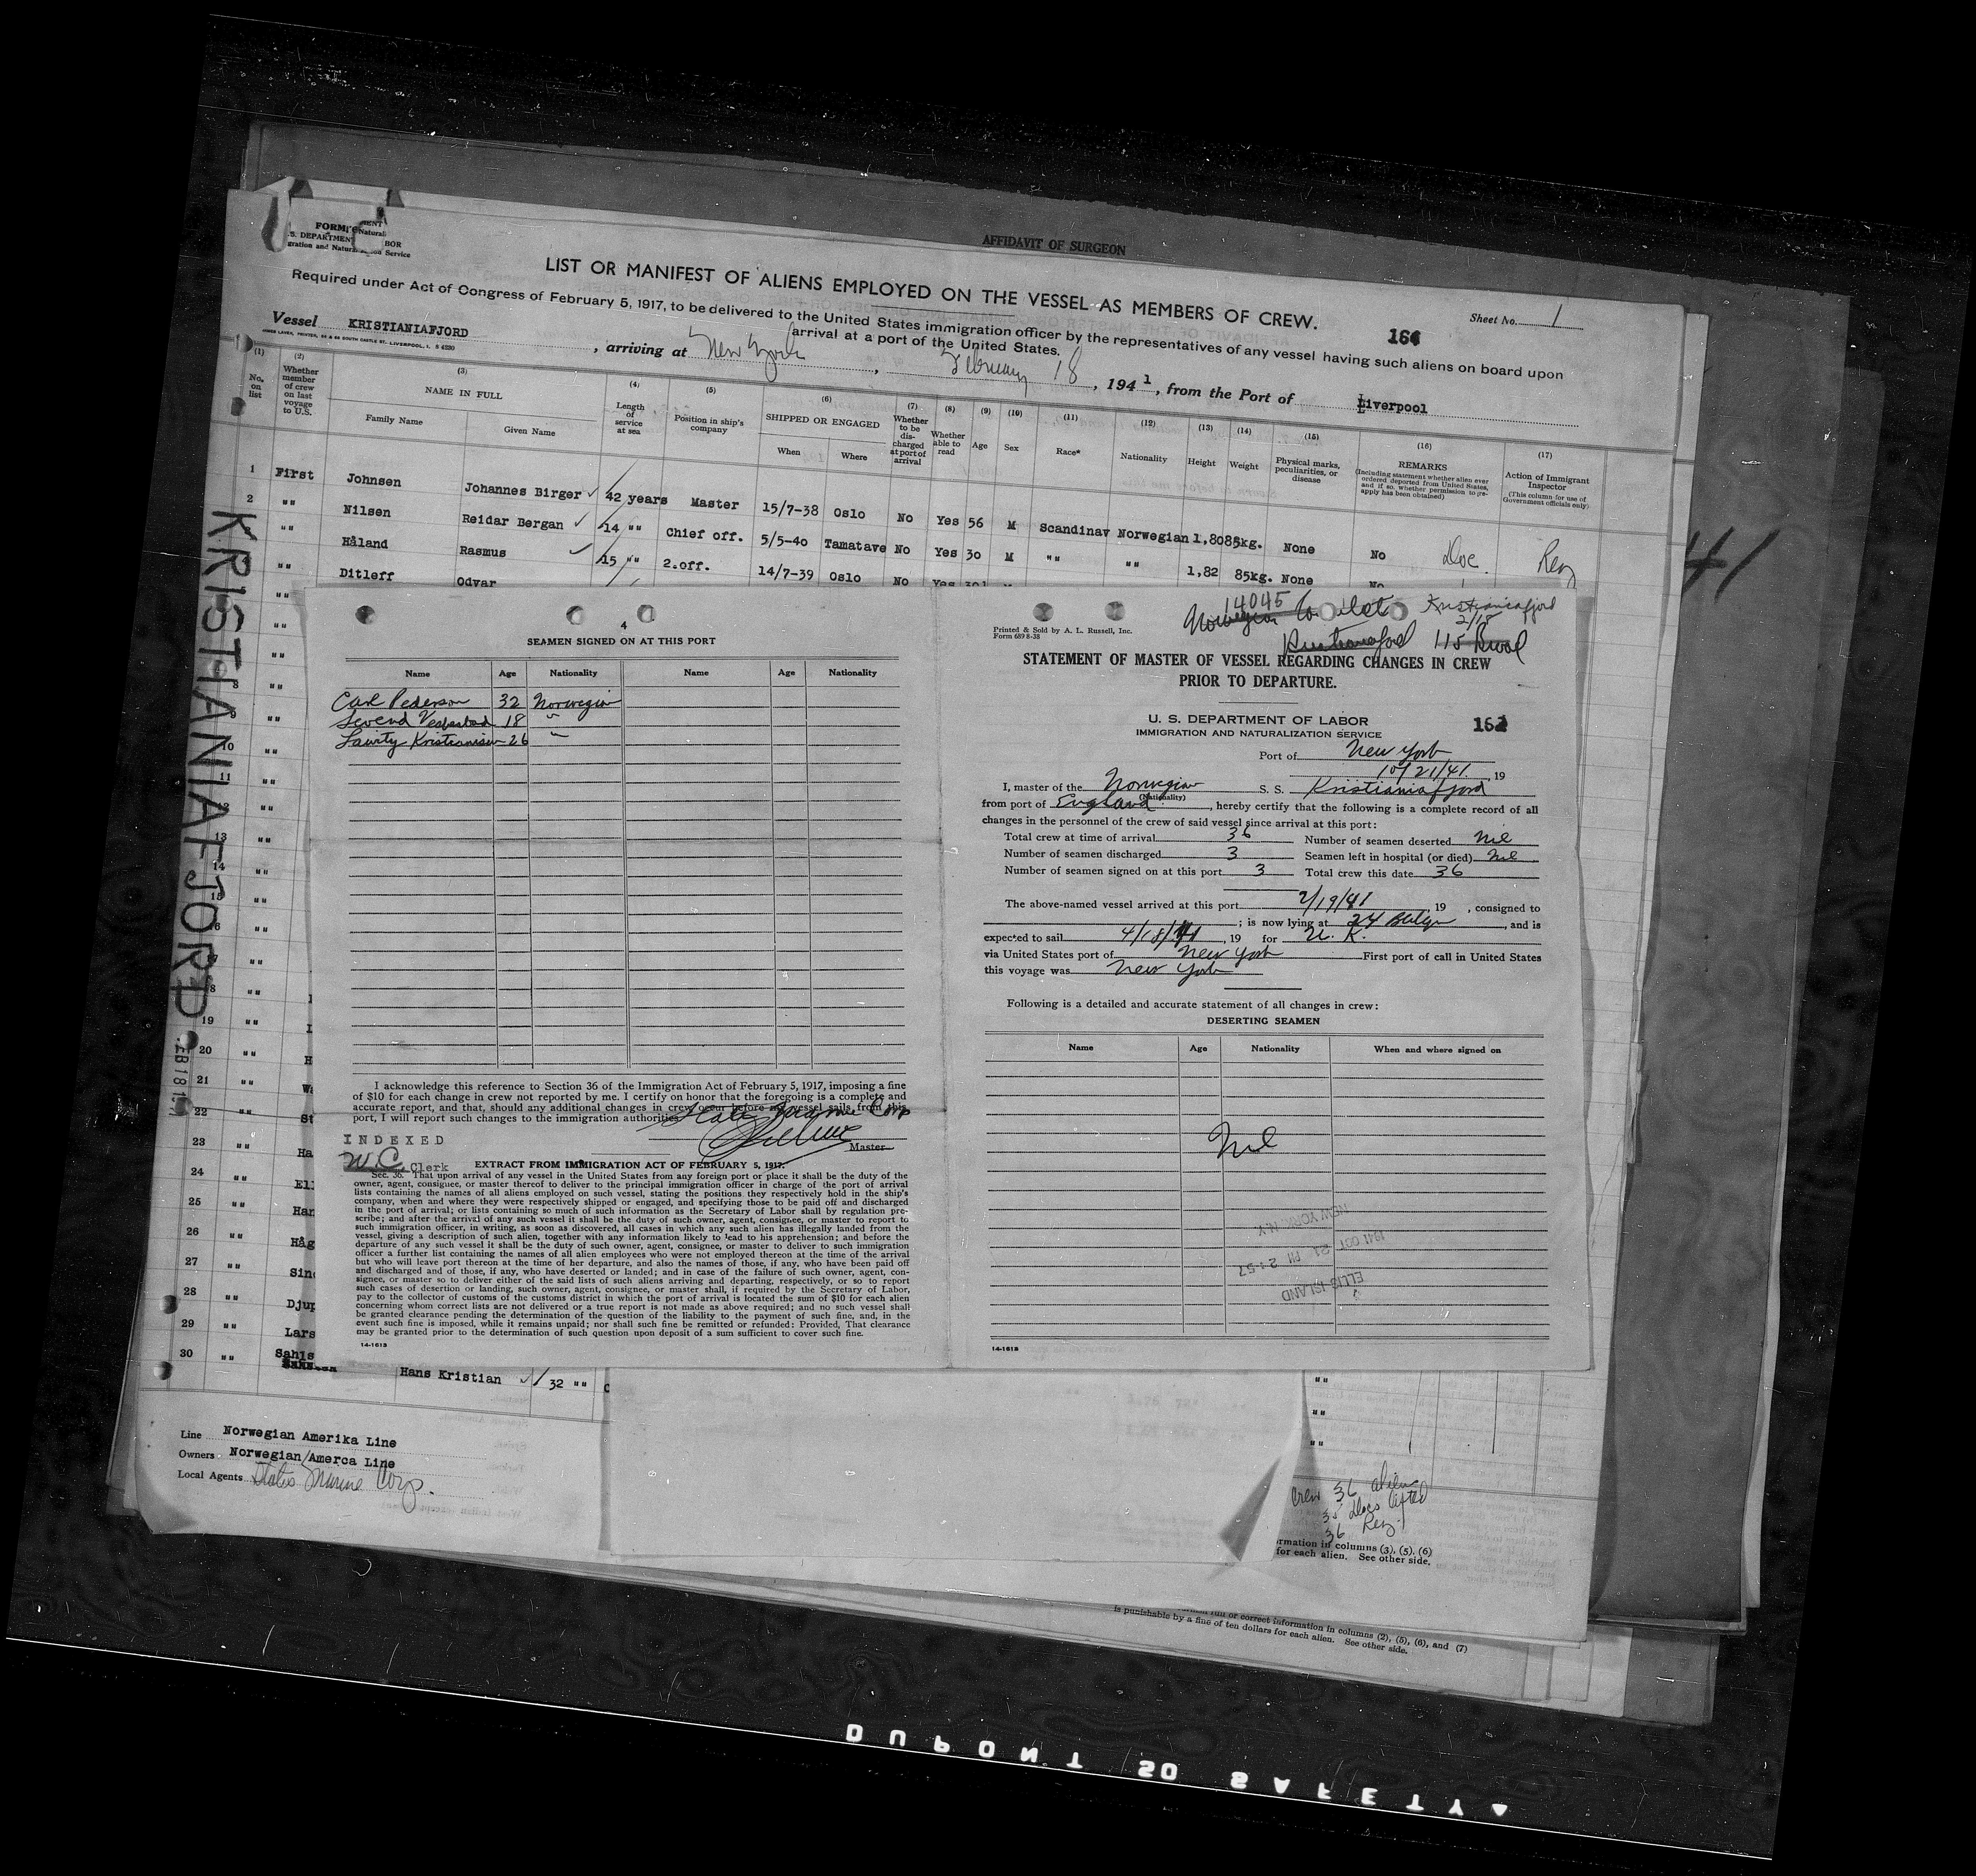 AFFIDAVIT OF SURGEON
LIST OR MANIFEST OF ALIENS EMPLOYED ON THE VESSEL AS MEMBERS OF CREW.
Required under Act of Congress of February 5, 1917, to be delivered to the United States immigration officer by the representatives of any vessel having such aliens on board upon
arrival at a port of the United States.
Sheet No. 1
Vessel KRISTIANIAFJORD, arriving at New York, February 18, 1941, from the Port of Liverpool
(1) (2) (3) (4) (5) (6) (7) (8) (9) (10) (11) (12) (13) (14) (15) (16) (17)
No. on list
Whether member of crew on last voyage to U.S.
NAME IN FULL
Family Name
Given Name
Length of service at sea
Position in ship's company
SHIPPED OR ENGAGED
When
Where
Whether to be discharged at port of arrival
Whether able to read
Age
Sex
Race*
Nationality
Height
Weight
Physical marks, peculiarities, or disease
REMARKS
(Including statement whether alien ever ordered deported from United States, and if so, whether permission to re-apply has been obtained)
Action of Immigrant Inspector
(This column for use of Government officials only)
1 First Johnsen Johannes Birger 42 years Master 15/7-38 Oslo No Yes 56 M Scandinav Norwegian 1,80 85kg. None No Doc. Reg
2 "" Nilsen Reidar Bergan 14 "" Chief off. 5/5-40 Tamatave No Yes 30 M "" "" 1,82 85kg. None No
"" Håland Rasmus 15 "" 2.off. 14/7-39 Oslo No Yes
"" Ditleff Odvar
KRISTIANIAFJORD
8
9
10
11
12
13
14
15
16
17
18
19
20
21
22
23
24
25
26
27
28
29
30 "" Hans Kristian 32 ""
Line Norwegian Amerika Line
Owners Norwegian/Amerca Line
Local Agents States Marine Corp.
Crew 36 alien
35 Docs lifted
36 Reg.
rmation in columns (3), (5), (6)
for each alien. See other side.
or correct information in columns (2), (5), (6), and (7)
is punishable by a fine of ten dollars for each alien. See other side.
4
SEAMEN SIGNED ON AT THIS PORT
Name Age Nationality Name Age Nationality
Carl Pederson 32 Norwegian
18 "
Kristiansen 26 "
I acknowledge this reference to Section 36 of the Immigration Act of February 5, 1917, imposing a fine
of $10 for each change in crew not reported by me. I certify on honor that the foregoing is a complete and
accurate report, and that, should any additional changes in crew occur before my vessel sails from this
port, I will report such changes to the immigration authorities.
State Marine Corp
Master
INDEXED
W.C. Clerk
EXTRACT FROM IMMIGRATION ACT OF FEBRUARY 5, 1917.
Sec. 36. That upon arrival of any vessel in the United States from any foreign port or place it shall be the duty of the
owner, agent, consignee, or master thereof to deliver to the principal immigration officer in charge of the port of arrival
lists containing the names of all aliens employed on such vessel, stating the positions they respectively hold in the ship's
company, when and where they were respectively shipped or engaged, and specifying those to be paid off and discharged
in the port of arrival; or lists containing so much of such information as the Secretary of Labor shall by regulation pre-
scribe; and after the arrival of any such vessel it shall be the duty of such owner, agent, consignee, or master to report to
such immigration officer, in writing, as soon as discovered, all cases in which any such alien has illegally landed from the
vessel, giving a description of such alien, together with any information likely to lead to his apprehension; and before the
departure of any such vessel it shall be the duty of such owner, agent, consignee, or master to deliver to such immigration
officer a further list containing the names of all alien employees who were not employed thereon at the time of the arrival
but who will leave port thereon at the time of her departure, and also the names of those, if any, who have been paid off
and discharged and of those, if any, who have deserted or landed; and in case of the failure of such owner, agent, con-
signee, or master so to deliver either of the said lists of such aliens arriving and departing, respectively, or so to report
such cases of desertion or landing, such owner, agent, consignee, or master, shall, if required by the Secretary of Labor,
pay to the collector of customs of the customs district in which the port of arrival is located the sum of $10 for each alien
concerning whom correct lists are not delivered or a true report is not made as above required; and no such vessel shall
be granted clearance pending the determination of the question of the liability to the payment of such fine, and, in the
event such fine is imposed, while it remains unpaid; nor shall such fine be remitted or refunded: Provided, That clearance
may be granted prior to the determination of such question upon deposit of a sum sufficient to cover such fine.
14-1613
Printed & Sold by A. L. Russell, Inc.
Form 689 8-38
14045
Kristianiafjord
2/18
STATEMENT OF MASTER OF VESSEL REGARDING CHANGES IN CREW
PRIOR TO DEPARTURE.
U. S. DEPARTMENT OF LABOR
IMMIGRATION AND NATURALIZATION SERVICE
Port of New York
10/21/41, 19
I, master of the Norwegian S. S. Kristianiafjord
(Nationality)
from port of England, hereby certify that the following is a complete record of all
changes in the personnel of the crew of said vessel since arrival at this port:
Total crew at time of arrival 36 Number of seamen deserted Nil
Number of seamen discharged 3 Seamen left in hospital (or died) Nil
Number of seamen signed on at this port 3 Total crew this date 36
The above-named vessel arrived at this port 2/19/41, 19 , consigned to
; is now lying at 24 Bklyn, and is
expected to sail 4/18/41, 19 for U. K.
via United States port of New York First port of call in United States
this voyage was New York
Following is a detailed and accurate statement of all changes in crew:
DESERTING SEAMEN
Name Age Nationality When and where signed on
Nil
ELLIS ISLAND
1941 OCT 21 PM 2:57
NEW YORK, N.Y.
14-1613
DUPONT SAFETY